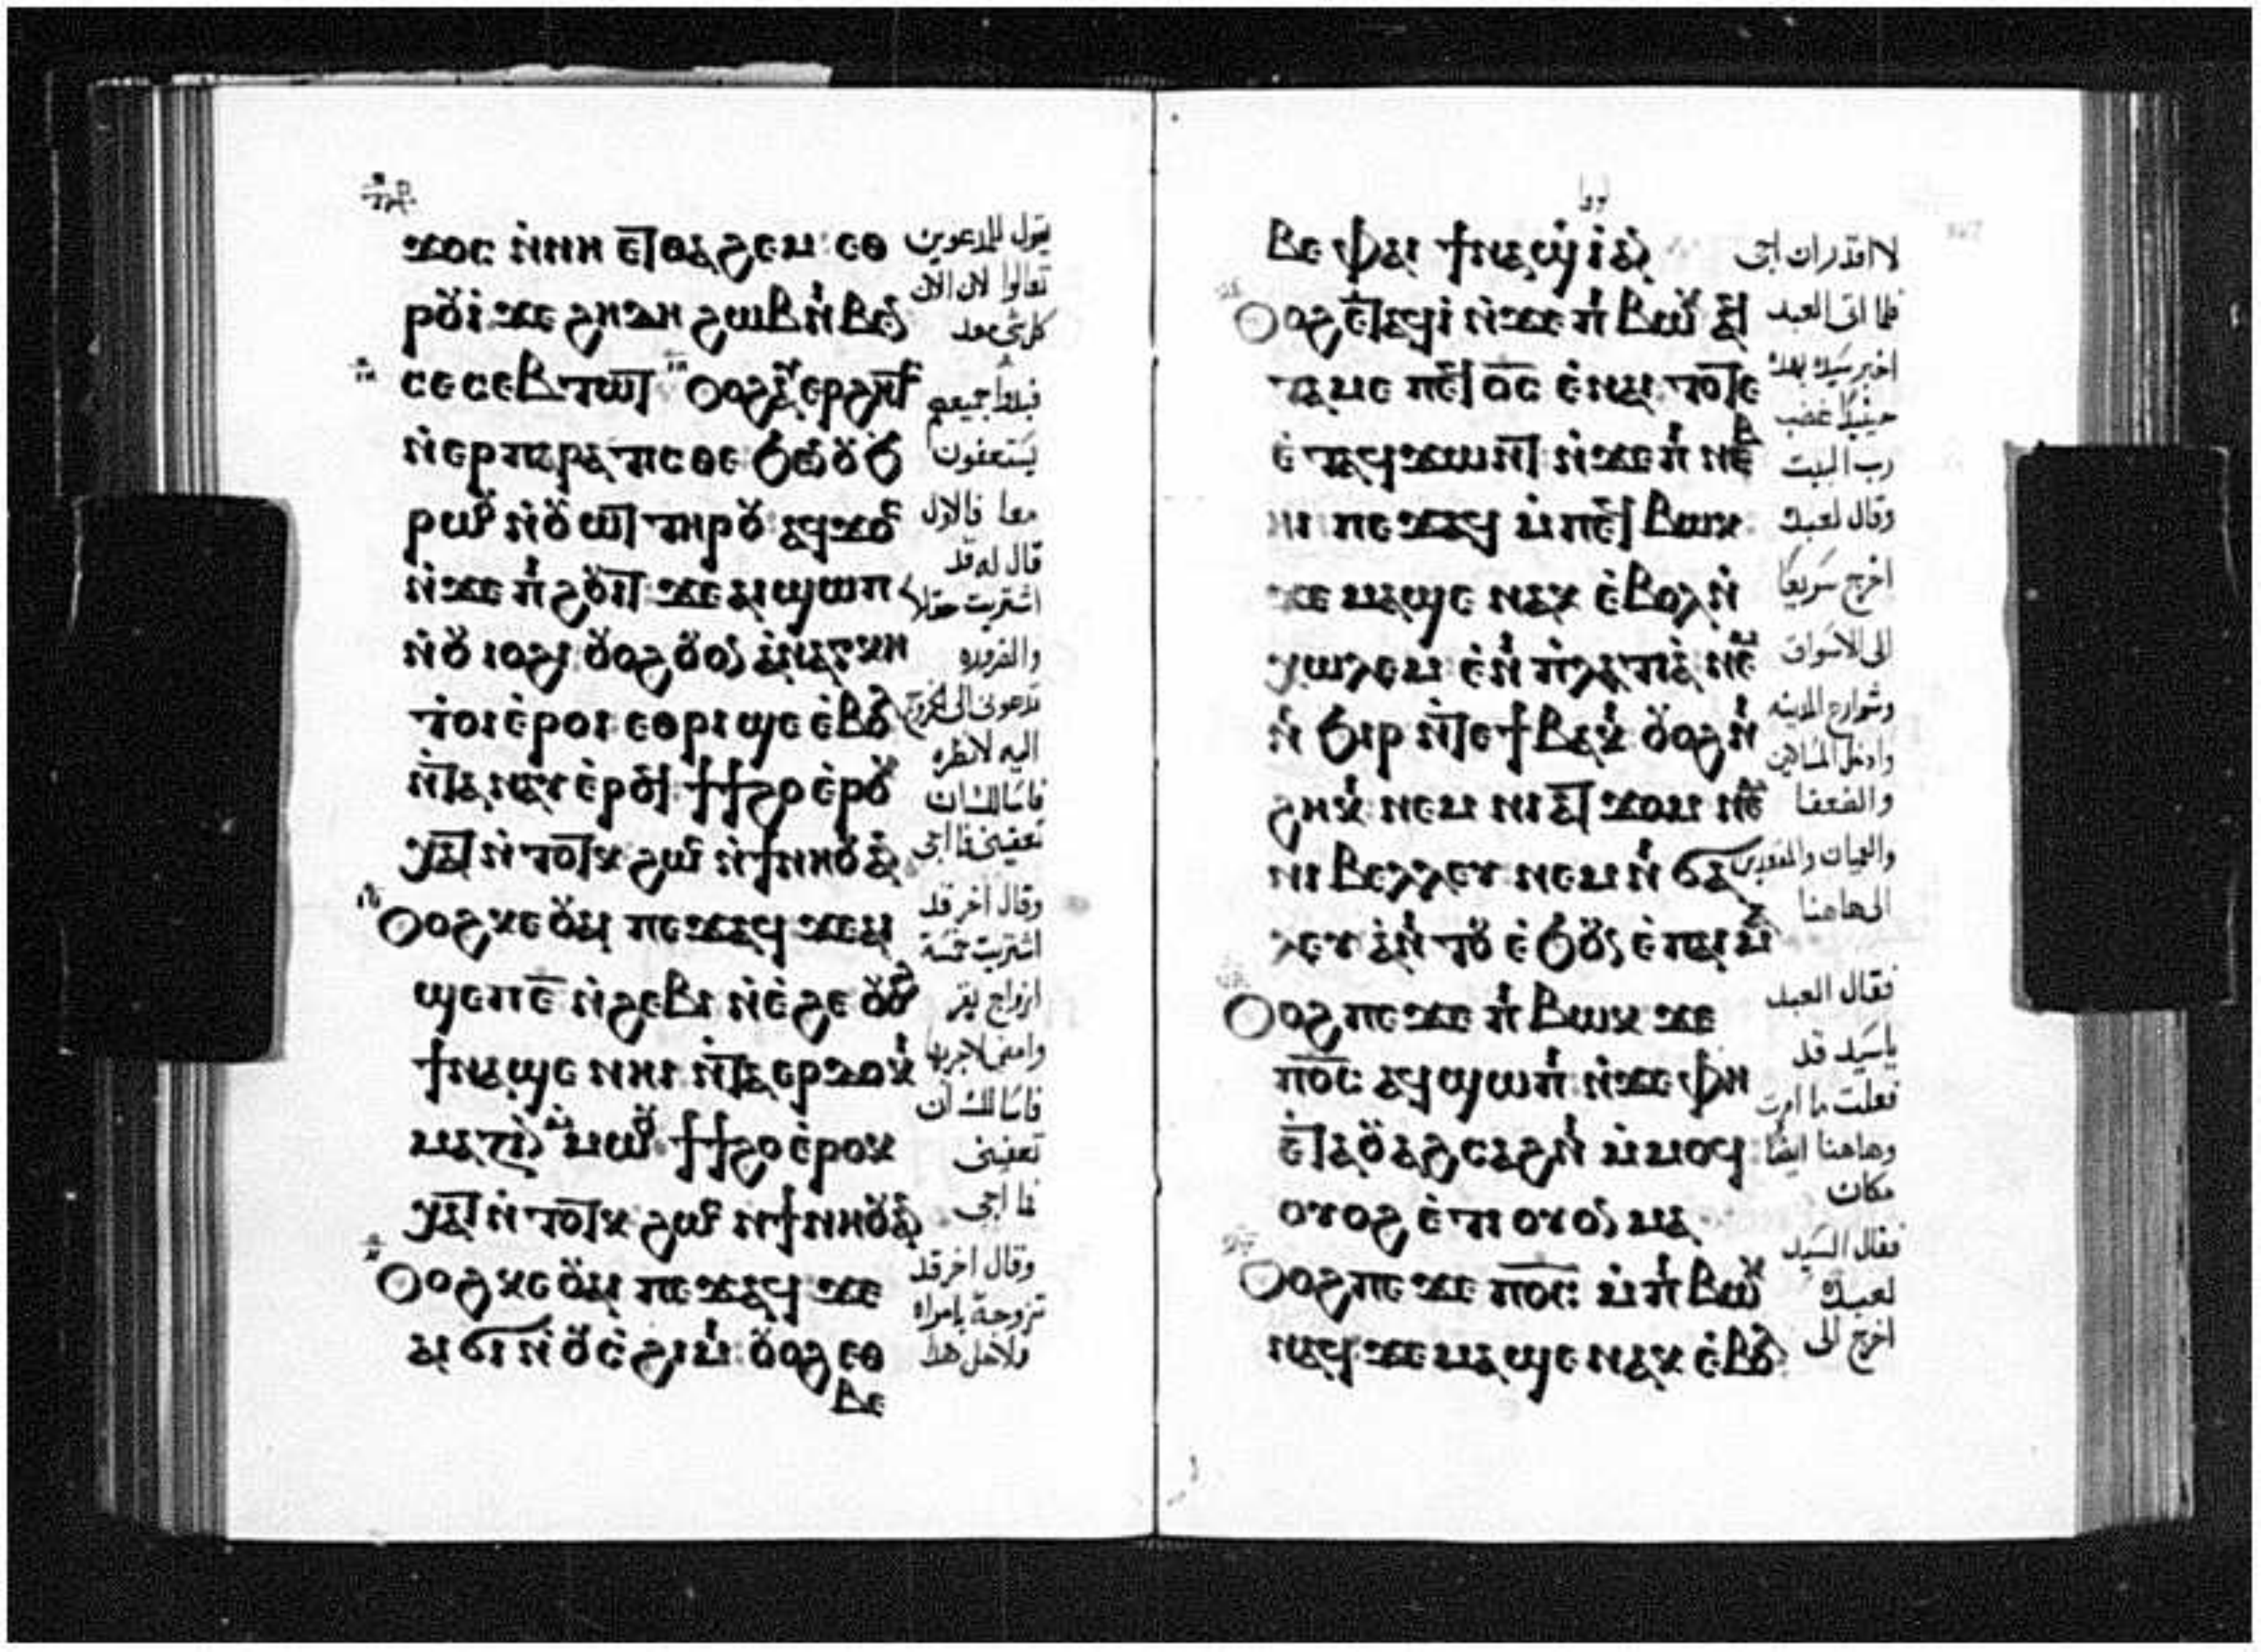 ϫⲟⲥ ⲛ̀ⲛⲏ ⲉⲧⲑⲁϩⲉⲙ ⲉⲑ
ⲣⲟⲩⲓ̀ ϫⲉ ϩⲏⲇⲏ ϩⲱⲃ ⲛ̀ⲓⲃⲉⲛ
ⲥⲉⲥⲉⲃⲧⲱⲧ ⲟⲩⲟϩ ⲁⲩⲉⲣϩⲏⲧⲥ
ⲛ̀ⲉⲣⲡⲁⲣⲁⲧⲓⲥⲑⲉ ϧⲉⲛ ⲟⲩϧ
ⲣⲱⲟⲩ ⲛ̀ⲟⲩⲱⲧ ⲧⲏⲣⲟⲩ ⲁϥϫⲟⲥ
ⲛ̀ϫⲉ ⲡⲓϩⲟⲩⲓⲧ ϫⲉ ⲁⲓϣⲱⲡ
ⲛ̀ⲟⲩⲓⲟϩⲓ ⲟⲩⲟϩ ⲟⲩⲟⲛ ⲁ̀ⲛⲁⲅⲕⲏ
ⲧⲟⲓ ⲉ̀ⲣⲟⲓ ⲉⲑⲣⲓϣⲉ ⲉ̀ⲃⲟⲗ
ⲛ̀ⲧⲁⲛⲁⲩ ⲉ̀ⲣⲟϥ ϯϯϩⲟ ⲉ̀ⲣⲟⲕ
ⲭⲁⲧ ⲛ̀ⲧⲟⲧⲕ ϩⲱⲥ ⲛ̀ϯⲛⲏⲟⲩ ⲁⲛ
ⲟⲩⲟϩ ⲕⲉⲟⲩⲁⲓ ⲡⲉϫⲁϥ ϫⲉ ⲁⲓ
ϣⲉⲡ ⲉ̅ ⲛ̀ϩⲉⲃⲓ ⲛ̀ⲉ̀ϩⲉ ⲟⲩⲟϩ
ϯⲛⲁϣⲉ ⲛⲏⲓ ⲛ̀ⲧⲁⲉⲣⲇⲟⲕⲓ
ⲙⲁⲍⲓⲛ ⲙⲙⲱⲟⲩ ϯϯϩⲟ ⲉ̀ⲣⲟⲕ
ⲭⲁⲧ ⲛ̀ⲧⲟⲧⲕ ϩⲱⲥ ⲛϯⲛⲏⲟⲩ ⲁⲛ
ⲟⲩⲟϩ ⲕⲉⲟⲩⲁⲓ ⲡⲉϫⲁϥ ϫⲉ
ⲁⲓϭⲓ ⲛ̀ⲟⲩⲥ̀ϩⲓⲙⲓ ⲟⲩⲟϩ ⲉⲑ
ⲃⲉ
يقول للمدعوين
تعالوا لان الان
كل شى معد
فبدوا جميعهم
يستعفون
معا فالاول
قال له قد
اشتريت حقلا
والضروره
تدعونى الى الخروج
اليه لانظره
فاسالك ان
تعفينى فا اجى
وقال اخر قد
اشتريت خمسة
ازواج بقر
وامضى لاجربها
فاسالك ان
تعفينى
فا اجى
وقال اخر قد
تزوجة بامراه
ولاجل هدا
ⲃⲉ ⲫⲁⲓ ϯⲛⲁϣⲓ̀ ⲁⲛ
ⲟⲩⲟϩ ⲉ̀ⲧⲁϥⲓ̀ ⲛ̀ϫⲉ ⲡⲓⲃⲱⲕ ⲁϥ
ⲧⲁⲙⲉ ⲡⲉϥⲟ̅ⲥ̅ ⲉ̀ⲛⲁⲓ ⲧⲟⲧⲉ
ⲉ̀ⲧⲁϥϫⲱⲛⲧ ⲛ̀ϫⲉ ⲡⲓⲛⲉⲃ
ⲏⲓ ⲡⲉϫⲁϥ ⲙ̀ⲡⲉϥⲃⲱⲕ
ϫⲉ ⲙⲁϣⲉ ⲛⲁⲕ ⲉ̀ⲃⲟⲗ ⲛ̀
ⲭⲱⲗⲉⲙ ⲉ̀ⲛⲓⲡ̀ⲗⲁⲧⲓⲁ̀ ⲛⲉⲙ
ⲛⲓϧⲓⲣ ⲛ̀ⲧⲉ ϯⲃⲁⲕⲓ ⲟⲩⲟϩ ⲛⲓ
ϩⲏⲕⲓ ⲛⲉⲙ ⲛⲓⲁⲧϫⲟⲙ ⲛⲉⲙ
ⲛⲓⲃⲉⲗⲗⲉⲩ ⲛⲉⲙ ⲛⲓϭⲁ
ⲗⲉⲩ ⲁ̀ⲛⲓⲧⲟⲩ ⲉ̀ϧⲟⲩⲛ ⲉ̀ⲡⲁⲓⲙⲁ
ⲟⲩⲟϩ ⲡⲉϫⲉ ⲡⲓⲃⲱⲕ ϫⲉ
ⲡⲟ̅ⲥ̅ ⲁϥϣⲱⲡⲓ ⲛ̀ϫⲉ ⲫⲏ
ⲉ̀ⲧⲁⲕⲟⲩⲁϩⲥⲁϩⲛⲓ ⲙ̀ⲙⲟϥ
ⲟⲩⲟϩ ⲉ̀ⲧⲓ ⲟⲩⲟⲛ ⲙⲁ
ⲟⲩⲟϩ ⲡⲉϫⲉ ⲡⲟ̅ⲥ̅ ⲙ̀ⲡⲓⲃⲱⲕ
ⲛⲁϥ ϫⲉ ⲙⲁϣⲉ ⲛⲁⲕ ⲉ̀ⲃⲟⲗ
لا اقدر ان اجى
فلما اتى العبد
اخبر سيده بهده
حينيد غضب
رب البيت
وقال لعبده
اخرج سريعا
الى الاسواق
وشوارع المدينه
وادخل المساكين
والضعفا
والعميان والمقعدين
الى هاهنا
فقال العبد
ياسيد قد
فعلت ما امرت
وهاهنا ايضا
مكان
فقال السيد
لعبده
اخرج الى